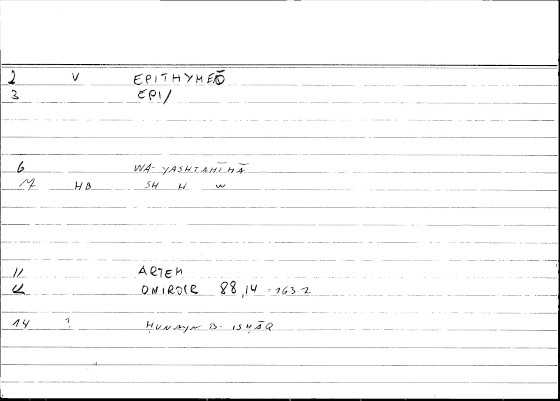 2 V EPITHYMEŌ
3 EPI/
6 WA-YASHTAHĪHĀ
7 HB SH H W
11 ARTEM
12 ONIROCR 88,14 = 163 2
14 ? ḤUNAYN B. ISḤĀQ